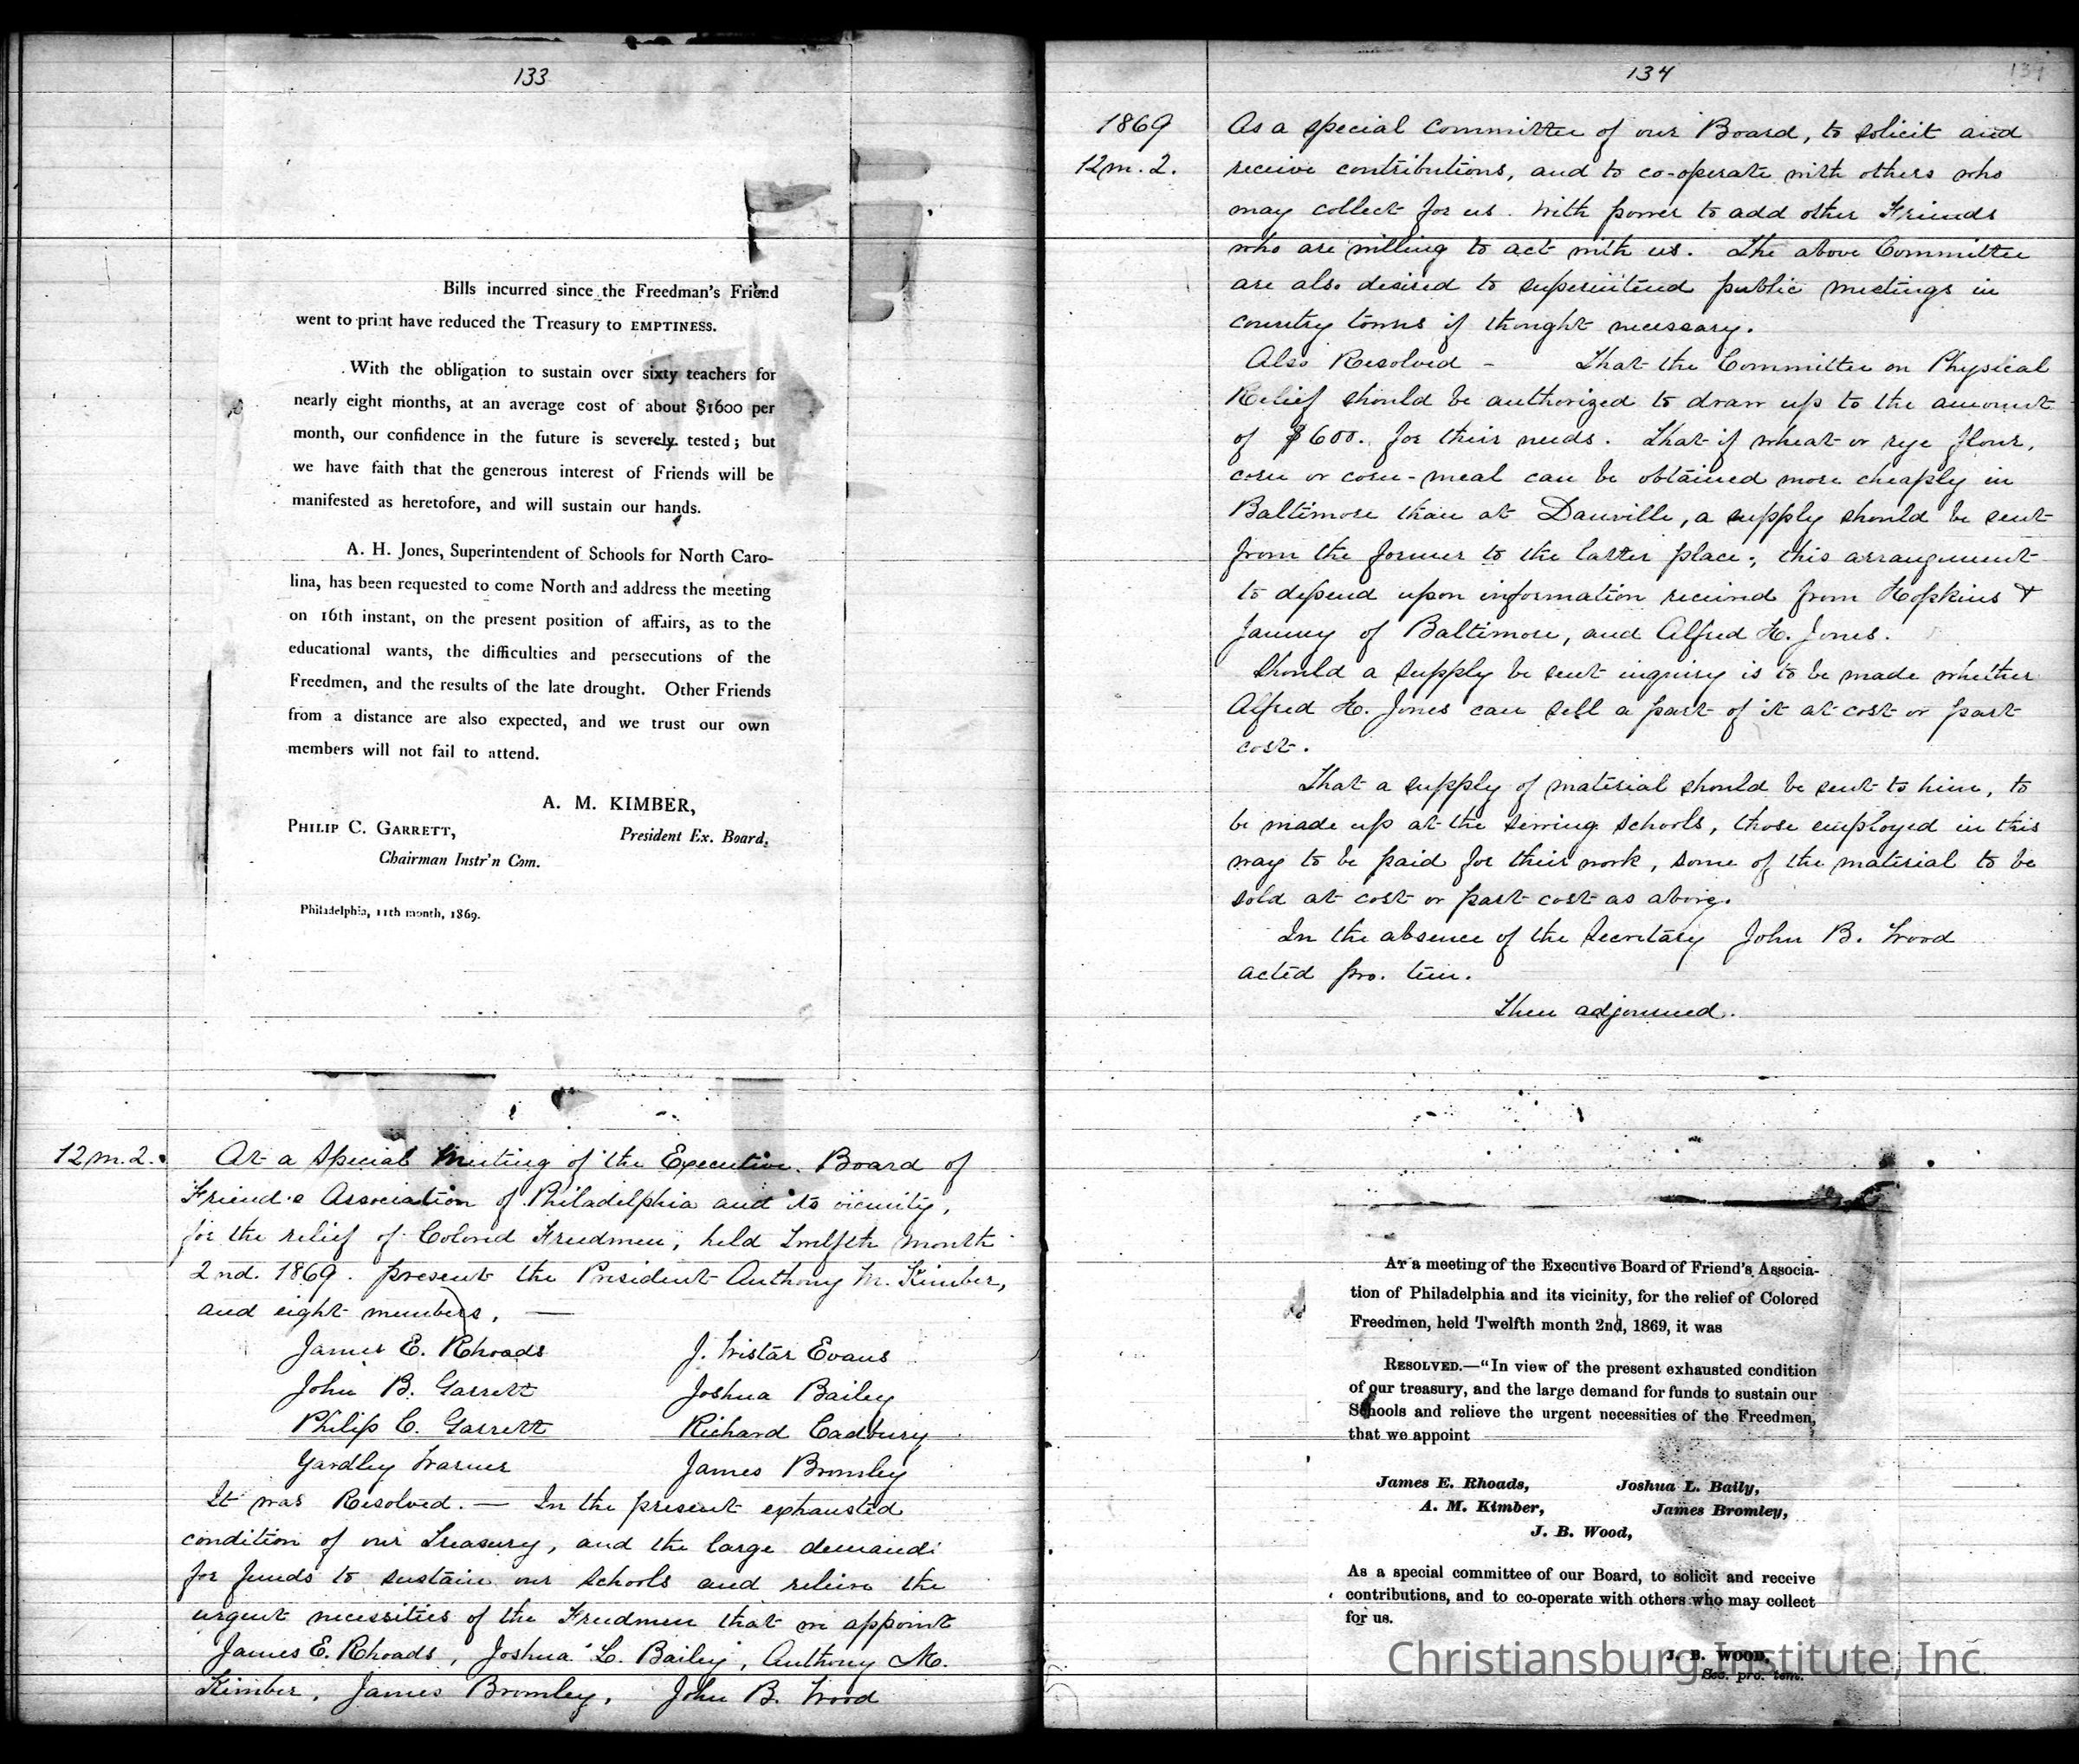 133
Bills incurred since the Freedman's Friend
went to print have reduced the Treasury to EMPTINESS.
With the obligation to sustain over sixty teachers for
nearly eight months, at an average cost of about $1600 per
month, our confidence in the future is severely tested; but
we have faith that the generous interest of Friends will be
manifested as heretofore, and will sustain our hands.
A. H. Jones, Superintendent of Schools for North Caro-
lina, has been requested to come North and address the meeting
on 16th instant, on the present position of affairs, as to the
educational wants, the difficulties and persecutions of the
Freedmen, and the results of the late drought. Other Friends
from a distance are also expected, and we trust our own
members will not fail to attend.
A. M. KIMBER,
President Ex. Board.
PHILIP C. GARRETT,
Chairman Instr'n Com.
Philadelphia, 11th month, 1869.
12m.2. At a Special Meeting of the Executive Board of
Friend's Association of Philadelphia and its vicinity,
for the relief of Colored Freedmen, held Twelfth month
2nd. 1869. present the President Anthony M. Kimber,
and eight members. —
James E. Rhoads J. Wistar Evans
John B. Garrett Joshua Bailey
Philip C. Garrett Richard Cadbury
Yardley Warner James Bromley
It was Resolved. — In the present exhausted
condition of our Treasury, and the large demand
for funds to sustain our schools and relieve the
urgent necessities of the Freedmen that we appoint
James E. Rhoads, Joshua L. Bailey, Anthony M.
Kimber, James Bromley, John B. Wood
134
134
1869 As a special committee of our Board, to solicit and
12m.2. receive contributions, and to co-operate with others who
may collect for us. With power to add other Friends
who are willing to act with us. The above Committee
are also desired to superintend public meetings in
country towns if thought necessary.
Also Resolved - That the Committee on Physical
Relief should be authorized to draw up to the amount
of $600. for their needs. That if wheat or rye flour,
corn or corn-meal can be obtained more cheaply in
Baltimore than at Danville, a supply should be sent
from the former to the latter place; this arrangement
to depend upon information received from Hopkins &
Janney of Baltimore, and Alfred H. Jones.
Should a supply be sent inquiry is to be made whether
Alfred H. Jones can sell a part of it at cost or part
cost.
That a supply of material should be sent to him, to
be made up at the sewing schools, those employed in this
way to be paid for their work, some of the material to be
sold at cost or part cost as above.
In the absence of the Secretary John B. Wood
acted pro. tem.
Then adjourned.
AT a meeting of the Executive Board of Friend's Associa-
tion of Philadelphia and its vicinity, for the relief of Colored
Freedmen, held Twelfth month 2nd, 1869, it was
RESOLVED.—"In view of the present exhausted condition
of our treasury, and the large demand for funds to sustain our
Schools and relieve the urgent necessities of the Freedmen,
that we appoint
James E. Rhoads, Joshua L. Baily,
A. M. Kimber, James Bromley,
J. B. Wood,
As a special committee of our Board, to solicit and receive
contributions, and to co-operate with others who may collect
for us.
J. B. WOOD,
Sec. pro. tem.
Christiansburg Institute, Inc